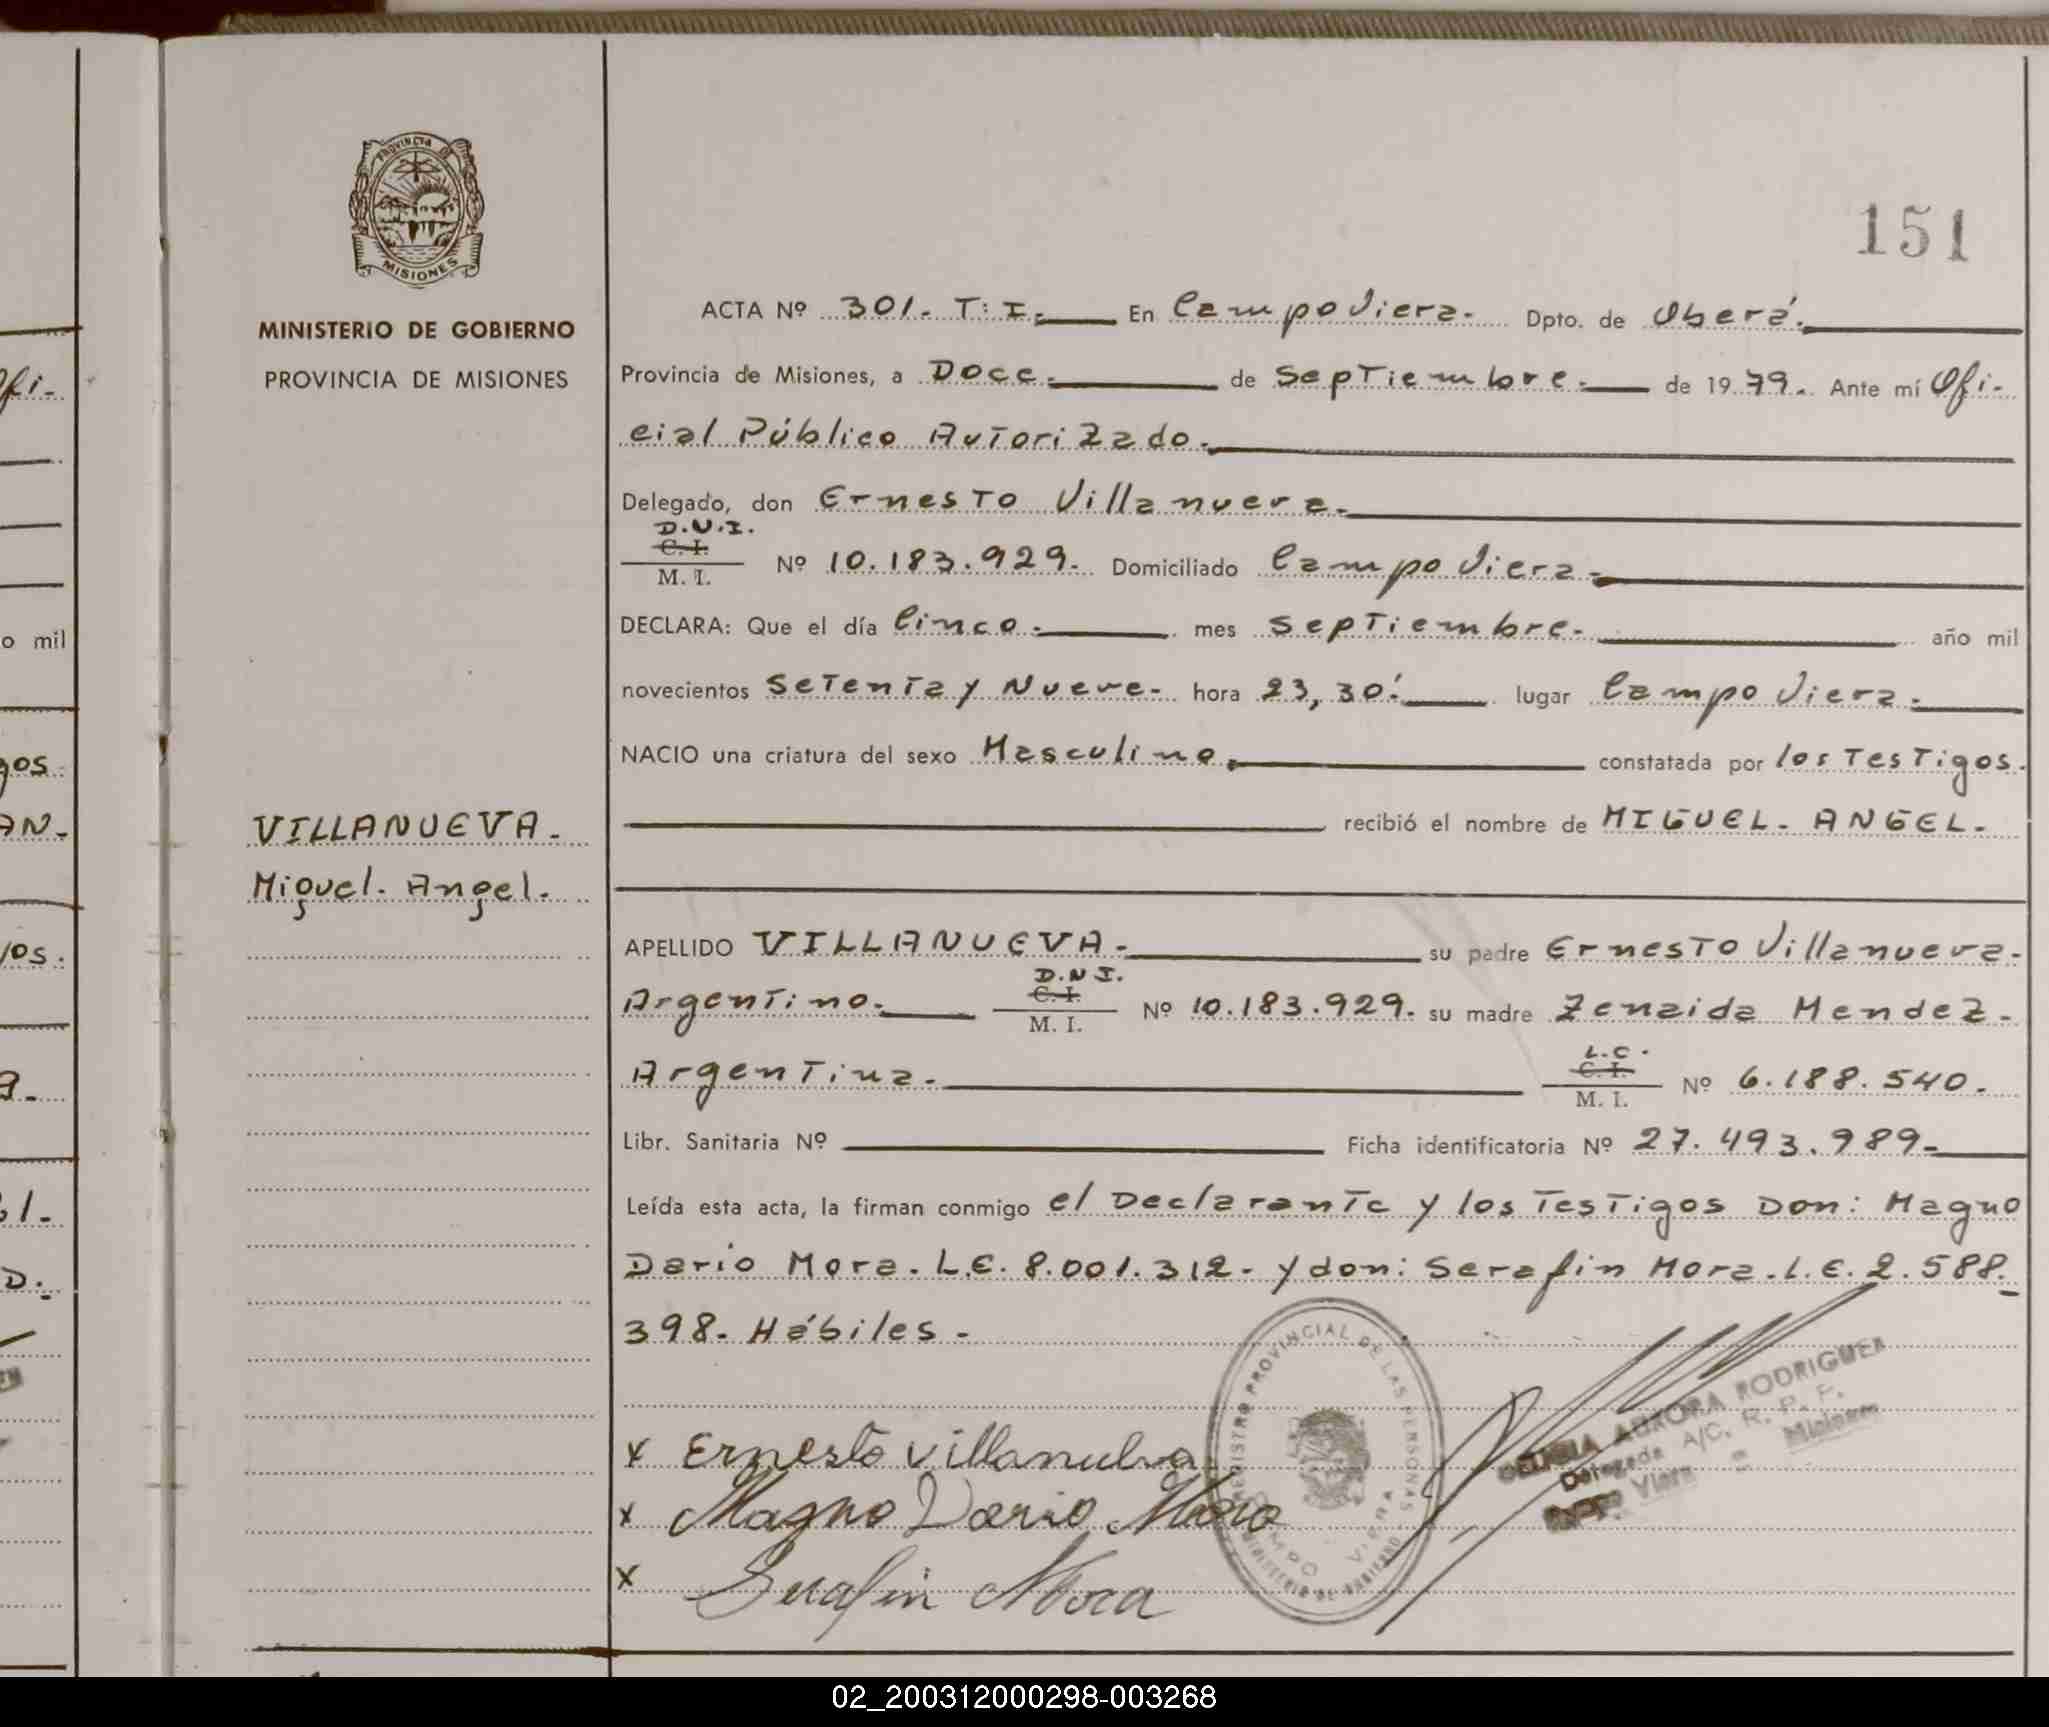 PROVINCIA DE
MISIONES
MINISTERIO DE GOBIERNO
PROVINCIA DE MISIONES
VILLANUEVA.
Miguel. Angel.
151
ACTA Nº 301. T: I. En Campo Viera. Dpto. de Oberá.
Provincia de Misiones, a Doce. de Septiembre. de 1979. Ante mí Ofi-
cial Público Autorizado.
Delegado, don Ernesto Villanueva.
D.N.I.
C. I.
M. I. Nº 10.183.929. Domiciliado Campo Viera.
DECLARA: Que el día Cinco. mes Septiembre. año mil
novecientos Setenta y Nueve. hora 23,30'. lugar Campo Viera.
NACIO una criatura del sexo Masculino. constatada por los Testigos.
recibió el nombre de MIGUEL. ANGEL.
APELLIDO VILLANUEVA. su padre Ernesto Villanueva.
D.N.I.
C. I.
Argentino. M. I. Nº 10.183.929. su madre Zenaida Mendez.
L.C.
C. I.
Argentina. M. I. Nº 6.188.540.
Libr. Sanitaria Nº Ficha identificatoria Nº 27.493.989.
Leída esta acta, la firman conmigo el Declarante y los Testigos Don: Magno
Dario Mora. L.E. 8.001.312. y don: Serafin Mora. L.E. 2.588.
398. Hábiles.
REGISTRO PROVINCIAL DE LAS PERSONAS
CAMPO VIERA
MINISTERIO DE GOBIERNO
AURORA RODRIGUEZ
Delegada A/C. R. P. P.
Viera - Misiones
x Ernesto Villanueva
x Magno Dario Mora
x Serafin Mora
ofi-
o mil
gos.
AN.
los.
a.
D.
02_200312000298-003268